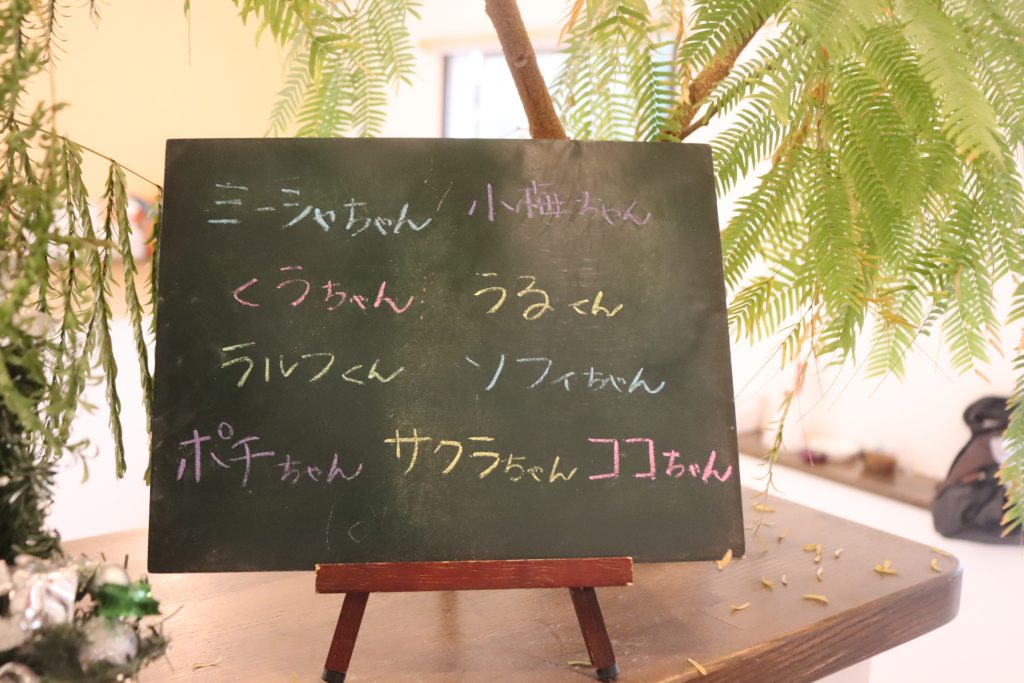 ミーシャちゃん 小梅ちゃん
くうちゃん うるくん
ラルフくん ソフィちゃん
ポチちゃん サクラちゃん ココちゃん